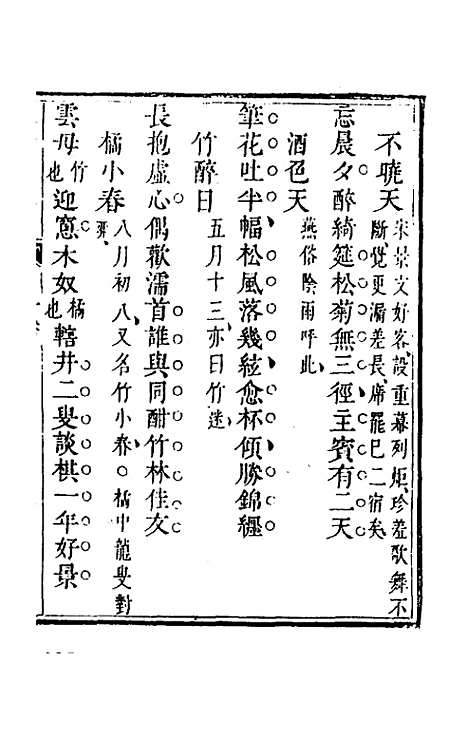 不曉天宋景文好客設重幕列炬珍羞歌舞不
斷覺更漏差長席罷已二宿矣
忘晨夕醉綺筵松菊無三徑主賓有二天
酒色天燕俗陰雨呼此
筆花吐半幅松風落幾絃愈杯傾勝錦纏
竹醉日五月十三亦曰竹迷
長抱虛心偶歡濡首誰與同酣竹林佳友
橘小春八月初八又名竹小春○橘中龍叟對
弈
雲母竹也迎窻木奴橘也轄井二叟談棋一年好景